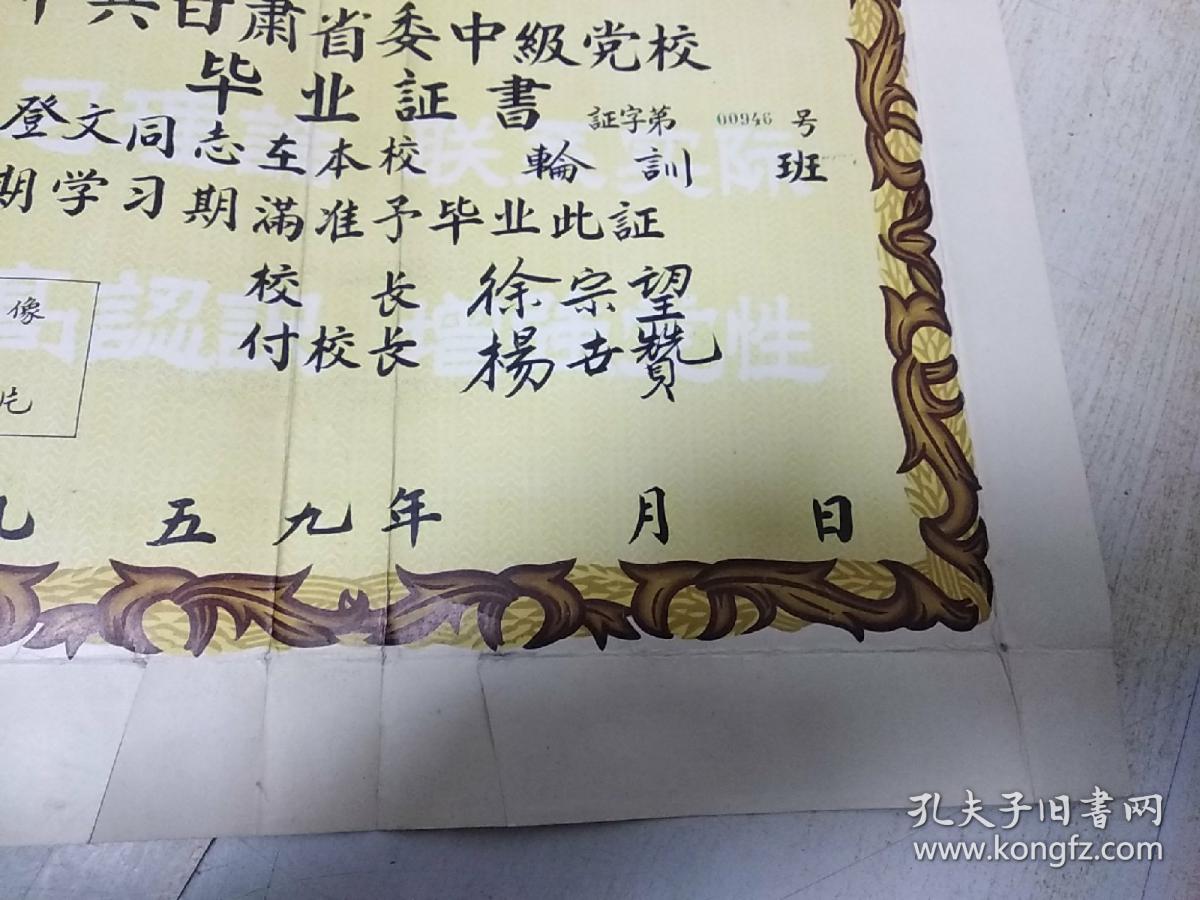 中共甘肅省委中級党校
毕业証書
証字第 00946 号
登文同志在本校 輪訓班
期学习期滿准予毕业此証
联系实际
認識 增强党性
像
片
校长 徐宗望
付校长 楊世贊
九 五九年 月 日
孔夫子旧书网
www.kongfz.com